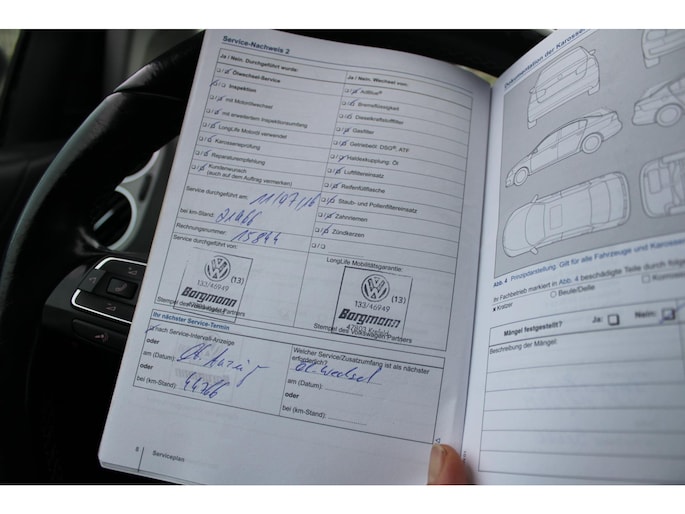 Service-Nachweis 2
Ja / Nein. Durchgeführt wurde:
Ölwechsel-Service
Inspektion
mit Motorölwechsel
mit erweitertem Inspektionsumfang
LongLife Motoröl verwendet
Karosserieprüfung
Reparaturempfehlung
Kundenwunsch
(auch auf dem Auftrag vermerken)
Ja / Nein. Wechsel von:
AdBlue®
Bremsflüssigkeit
Dieselkraftstofffilter
Gasfilter
Getriebeöl: DSG®, ATF
Haldexkupplung: Öl
Luftfiltereinsatz
Reifenfüllflasche
Staub- und Pollenfiltereinsatz
Zahnriemen
Zündkerzen
Service durchgeführt am: 11/07/16
bei km-Stand:
Rechnungsnummer: 15844
Service durchgeführt von:
(13)
133/46949
Borgmann
Stempel des Volkswagen Partners
LongLife Mobilitätsgarantie:
(13)
133/46949
Borgmann
47803 Krefeld
Stempel des Volkswagen Partners
Ihr nächster Service-Termin
nach Service-Intervall-Anzeige
oder
am (Datum):
oder
bei (km-Stand): 44766
Welcher Service/Zusatzumfang ist als nächster
erforderlich?
Öl. Wechsel
am (Datum):
oder
bei (km-Stand):
8
Serviceplan
Dokumentation der Karosser
Abb. 4 Prinzipdarstellung. Gilt für alle Fahrzeuge und Karosser
Ihr Fachbetrieb markiert in Abb. 4 beschädigte Teile durch folge
x Kratzer
Beule/Delle
Korrosio
Mängel festgestellt?
Ja:
Nein:
Beschreibung der Mängel: